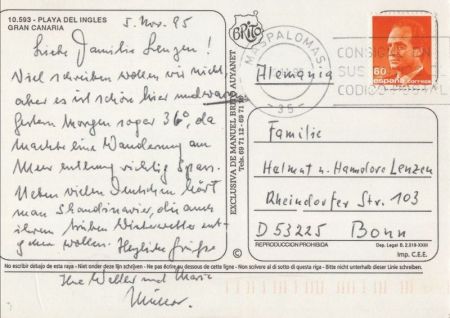 10.593 - PLAYA DEL INGLES
GRAN CANARIA
5. Nov. 95
Liebe Familie Lenzen!
Viel schreiben wollen wir nicht
aber es ist schön hier und warm
gestern Morgen sogar 36°, da
machte eine Wanderung am
Meer entlang richtig Spass.
Neben vielen Deutschen hört
man Skandinavier, die auch
ihrem trüben Winterwetter ent-
gehen wollen. Herzliche Grüße
No escribir debajo de esta raya - Niet onder deze lijn schrijven - Ne pas écrire au dessous de cette ligne - Non scrivere al di sotto di questa riga - Bitte nicht unterhalb dieser Linie schreiben.
Ihre und Maria
BRITO
EXCLUSIVA DE MANUEL BRITO AUYANET
Tels. 69 71 12 - 69 71 18
MASPALOMAS
-35-
CONSIGNE EN
SUS
CODIGO POSTAL
60
ESPAÑA
CORREOS
Alemania
Familie
Helmut u. Hannelore Lenzen
Rheindorfer Str. 103
D 53225 Bonn
REPRODUCCION PROHIBIDA
Dep. Legal B. 2.318-XXIII
Imp. C.E.E.